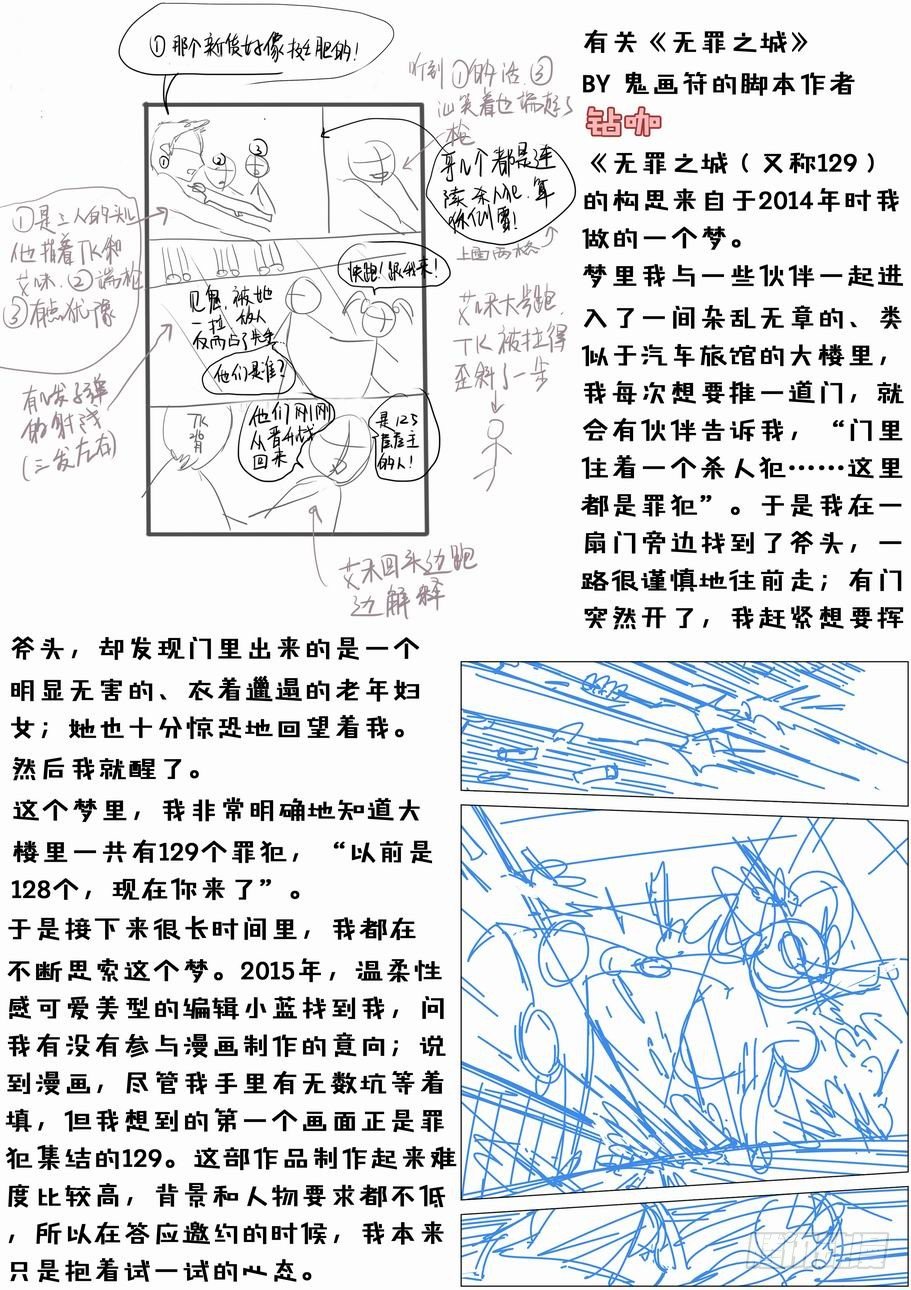 ①那个新傻好像挺胆的!
听到①的话③
讪笑着也端起了
枪
①
②
③
哥几个都是连
续杀人犯.算
你们雷!
上面两格
①是三人的头儿
他指着TK和
艾咪.②端枪
③有点犹豫
快跑!跟我来!
见鬼,被她
一拉
他们是谁?
艾咪大步跑
TK被拉得
歪斜了一步
有几发子弹
的射线
(三发左右)
TK
背
他们刚刚
从晋升战
回来
是125
屋屋主
的人!
艾米回头边跑
边解释
有关《无罪之城》
BY 鬼画符的脚本作者
钻咖
《无罪之城(又称129)
的构思来自于2014年时我
做的一个梦。
梦里我与一些伙伴一起进
入了一间杂乱无章的、类
似于汽车旅馆的大楼里,
我每次想要推一道门,就
会有伙伴告诉我,“门里
住着一个杀人犯……这里
都是罪犯”。于是我在一
扇门旁边找到了斧头,一
路很谨慎地往前走;有门
突然开了,我赶紧想要挥
斧头,却发现门里出来的是一个
明显无害的、衣着邋遢的老年妇
女;她也十分惊恐地回望着我。
然后我就醒了。
这个梦里,我非常明确地知道大
楼里一共有129个罪犯,“以前是
128个,现在你来了”。
于是接下来很长时间里,我都在
不断思索这个梦。2015年,温柔性
感可爱美型的编辑小蓝找到我,问
我有没有参与漫画制作的意向;说
到漫画,尽管我手里有无数坑等着
填,但我想到的第一个画面正是罪
犯集结的129。这部作品制作起来难
度比较高,背景和人物要求都不低
,所以在答应邀约的时候,我本来
只是抱着试一试的心态。